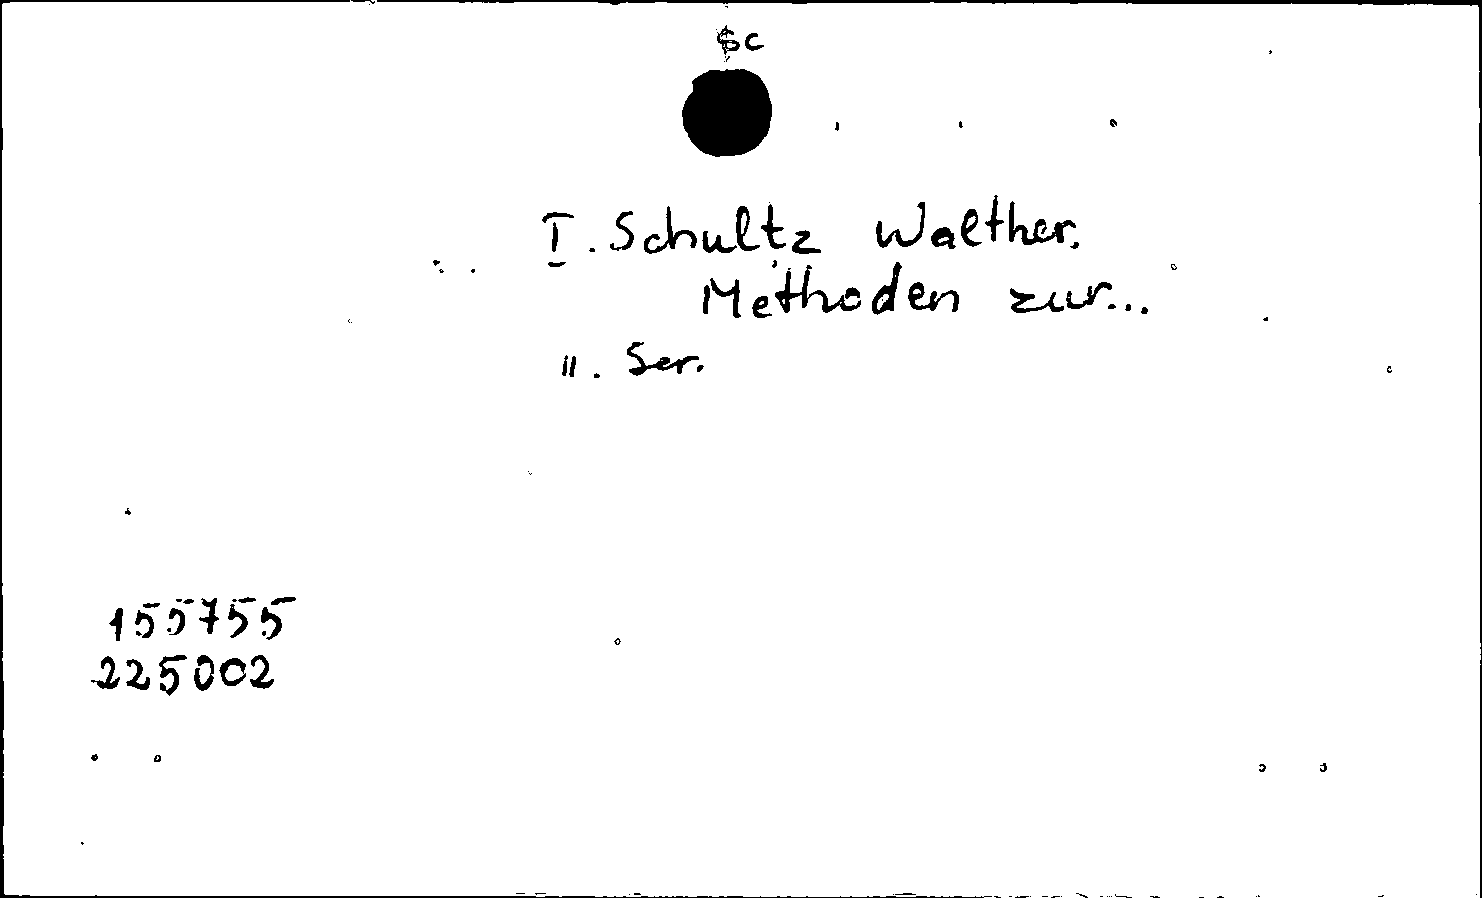 $c
I. Schultz Walther.
Methoden zur...
II. Ser.
155755
225002